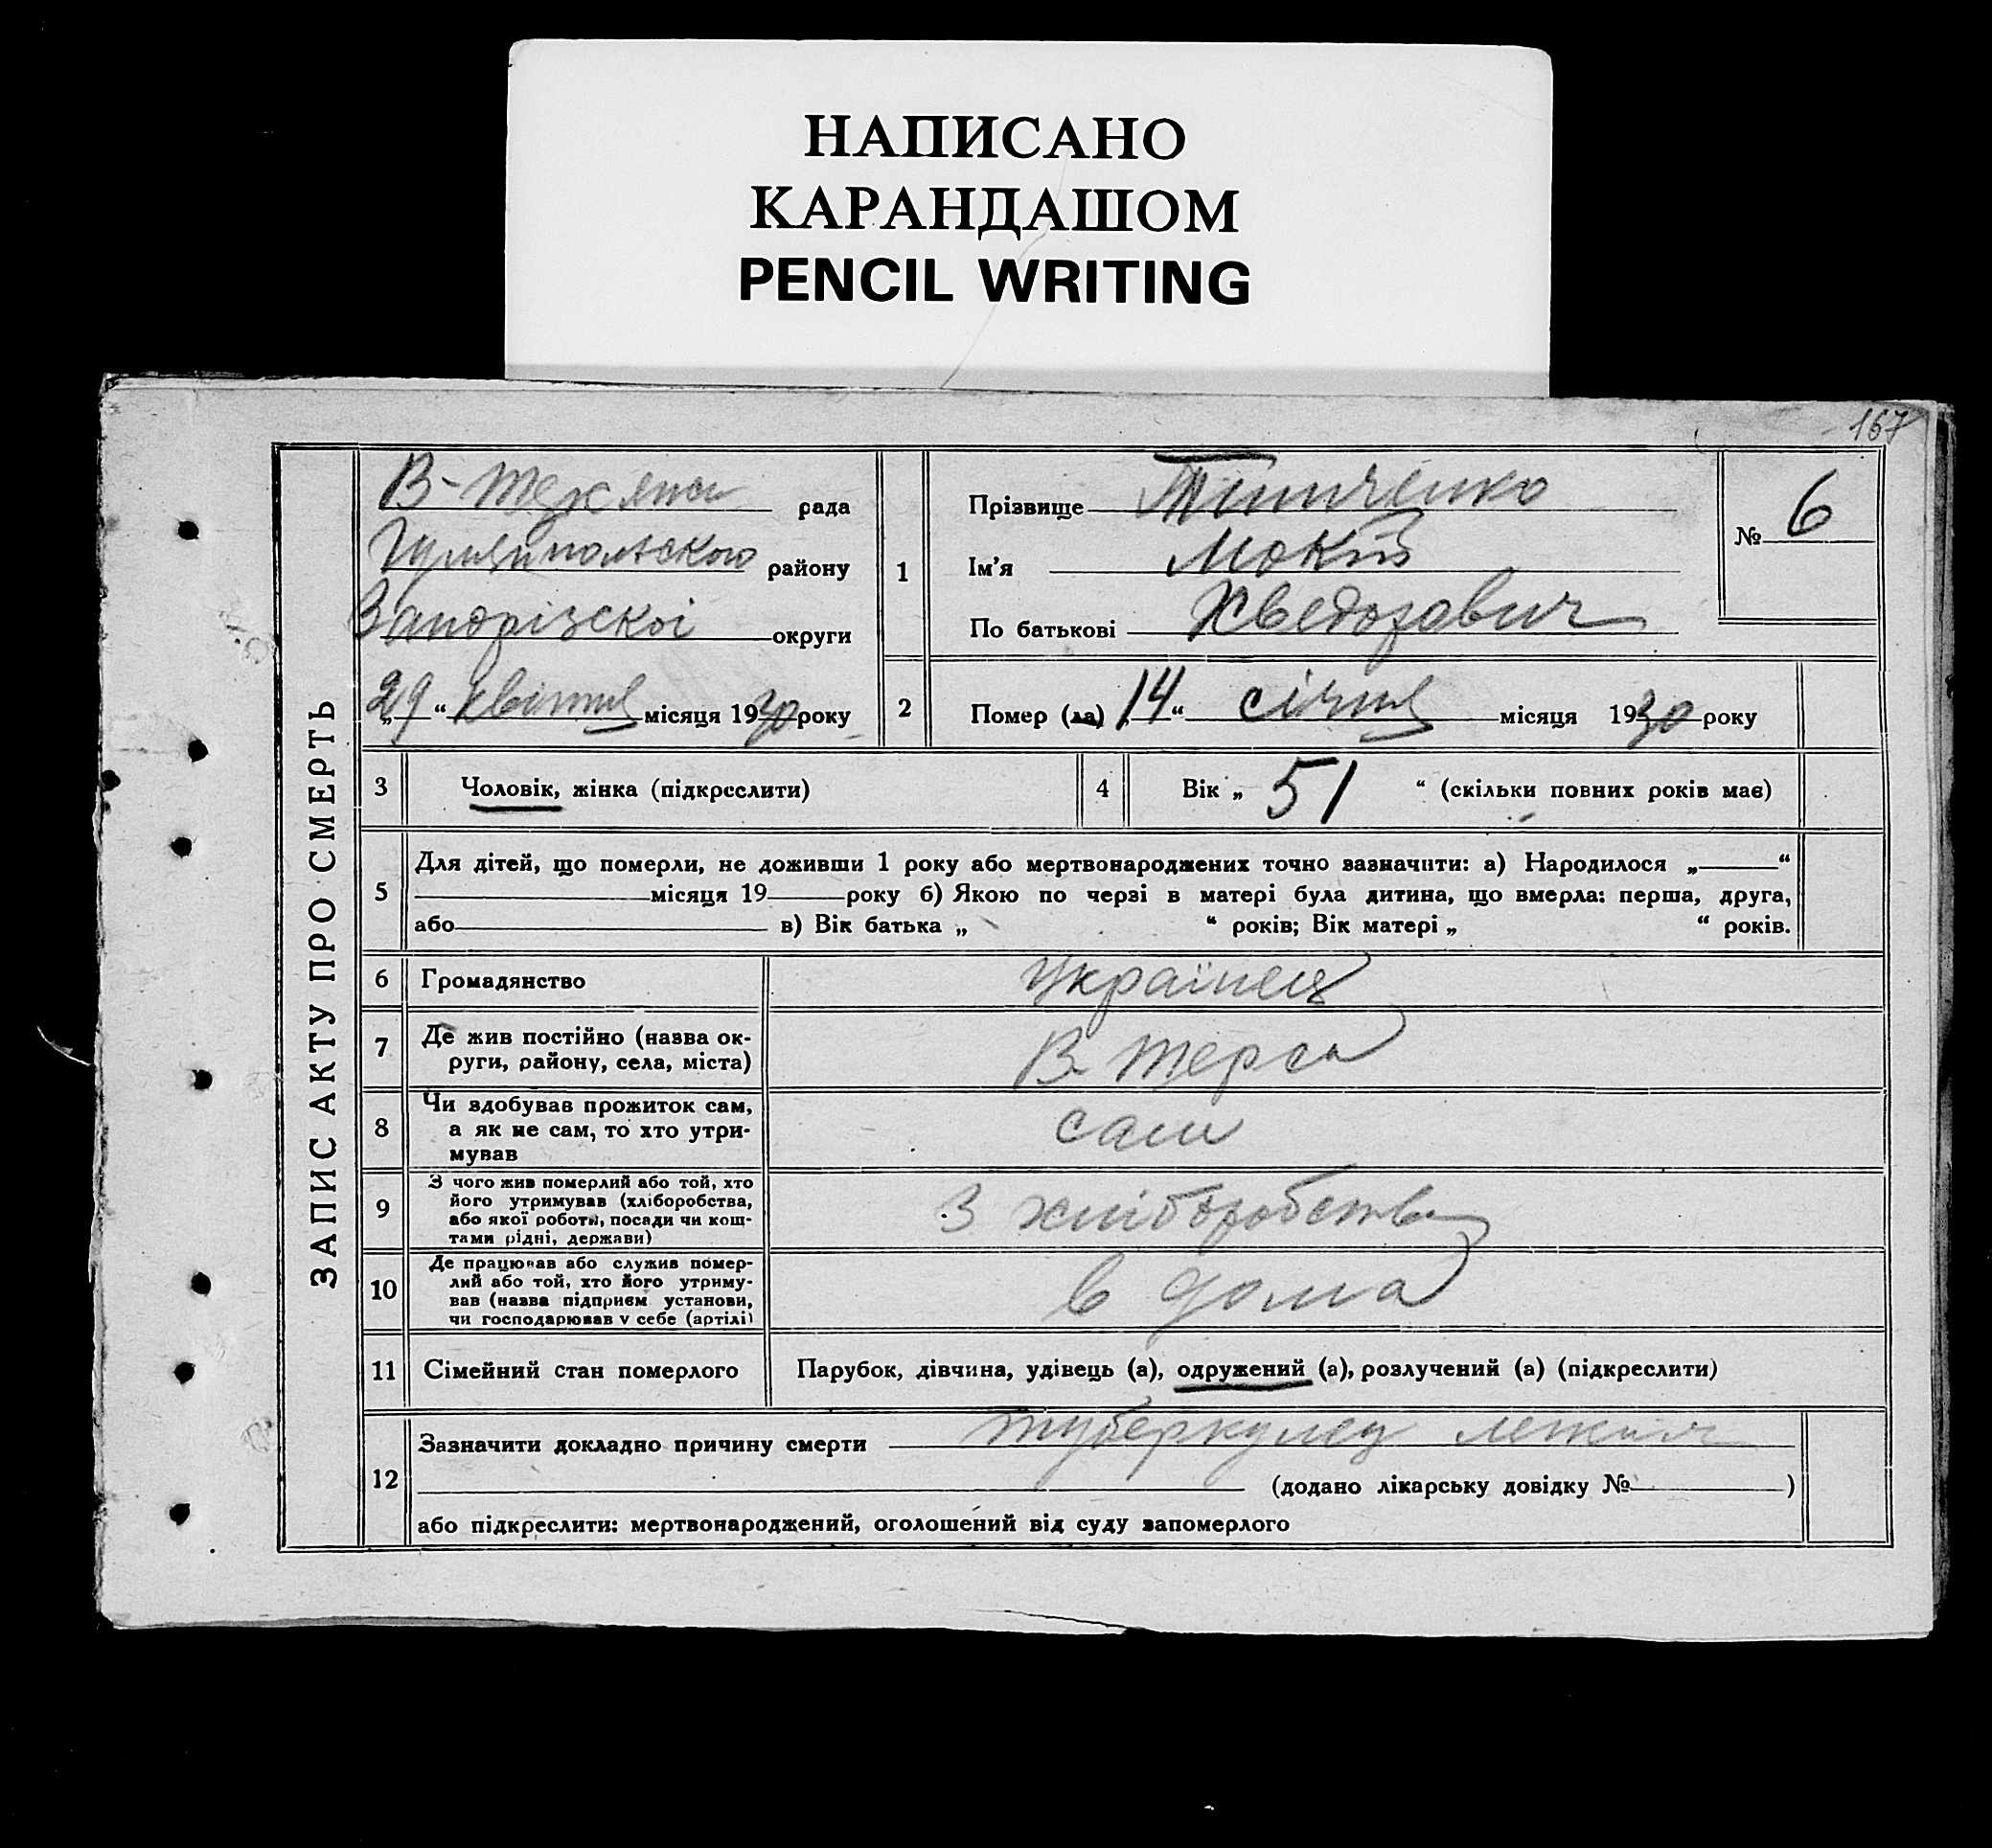 НАПИСАНО
КАРАНДАШОМ
PENCIL WRITING
167
ЗАПИС АКТУ ПРО СМЕРТЬ
рада
Гуляйпольського району
Запорізскої округи
„29“ квітня місяця 1930 року
1
Прізвище
Ім'я Мокій
По батькові Хведорович
№ 6
2 Помер (ла) „14“ січня місяця 1930 року
3 Чоловік, жінка (підкреслити)
4 Вік „51“ (скільки повних років має)
5 Для дітей, що померли, не доживши 1 року або мертвонароджених точно зазначити: а) Народилося „ “
місяця 19 року б) Якою по черзі в матері була дитина, що вмерла: перша, друга,
або в) Вік батька „ “ років; Вік матері „ “ років.
6 Громадянство Українець
7 Де жив постійно (назва ок-
руги, району, села, міста) В. Терса
8 Чи здобував прожиток сам,
а як не сам, то хто утри-
мував
сам
9 З чого жив померлий або той, хто
його утримував (хліборобства,
або якої роботи, посади чи кош-
тами рідні, держави)
З хліборобства
10 Де працював або служив помер-
лий або той, хто його утриму-
вав (назва підприєм установи,
чи господарював у себе (артілі)
в дома
11 Сімейний стан померлого Парубок, дівчина, удівець (а), одружений (а), розлучений (а) (підкреслити)
12 Зазначити докладно причину смерти туберкулез
(додано лікарську довідку № )
або підкреслити: мертвонароджений, оголошений від суду запомерлого